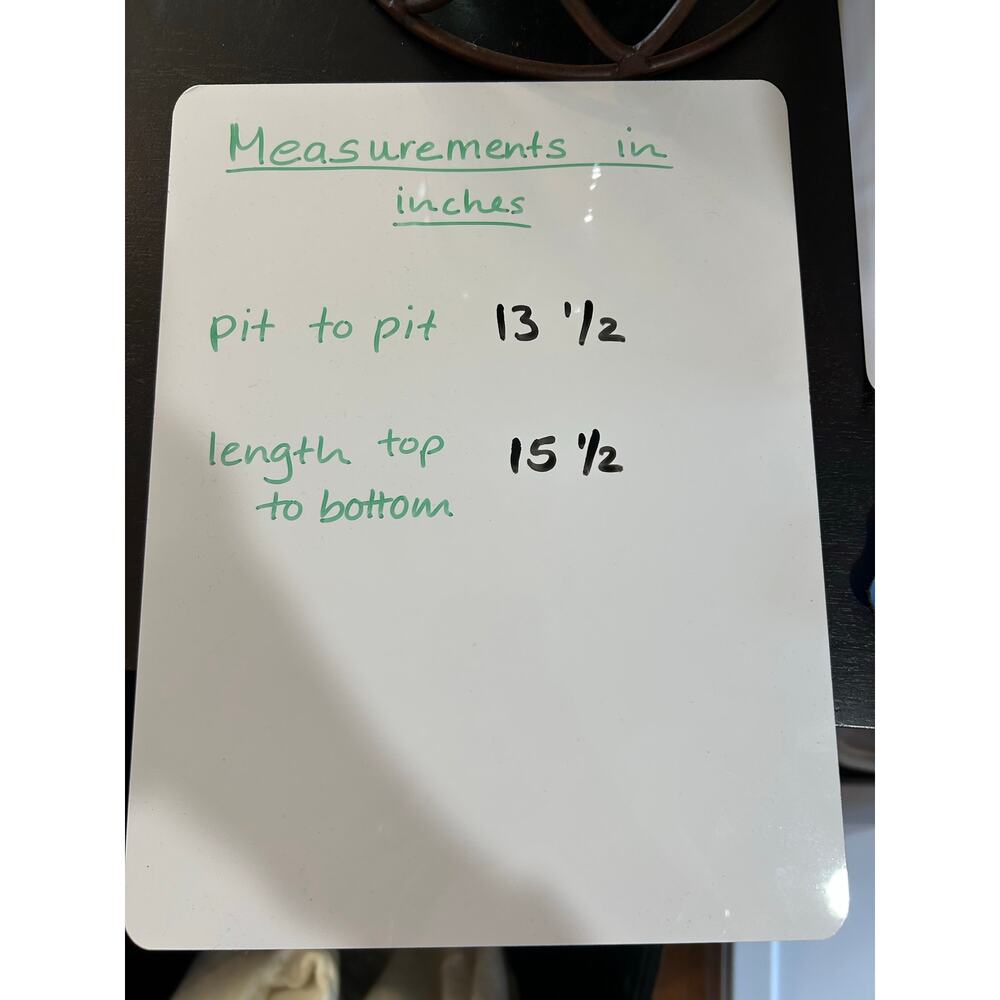 Measurements in
inches
pit to pit 13 1/2
length top 15 1/2
to bottom